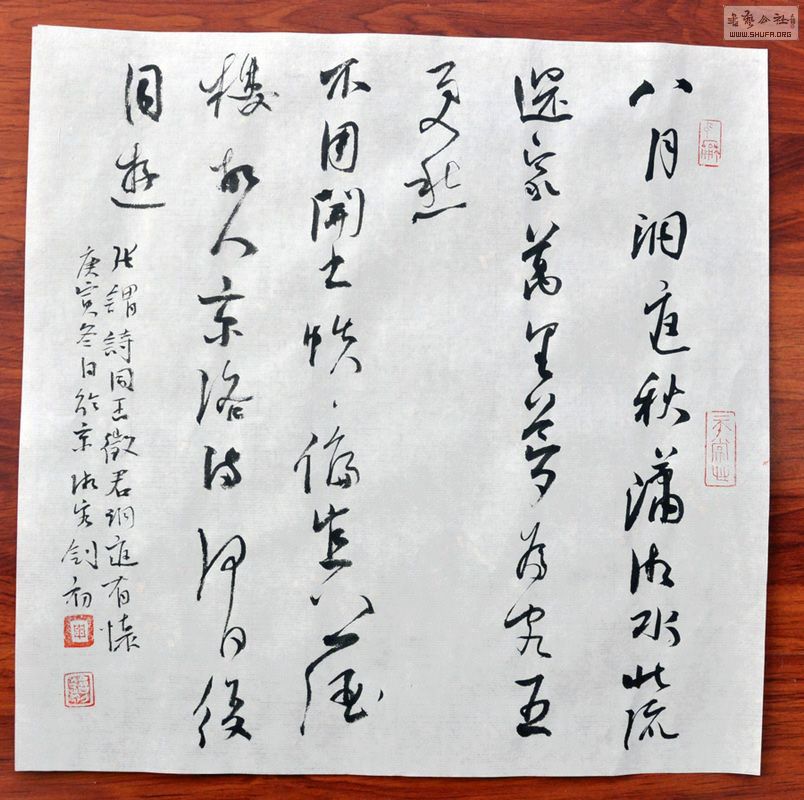 八月洞庭秋瀟湘水北流
還家萬里夢為客五
更愁
不用開書帙偏宜上酒
樓故人京洛滿何日復
同遊
張謂詩同王徵君洞庭有懷
庚寅冬日於京湘客劍初
書藝公社
WWW.SHUFA.ORG